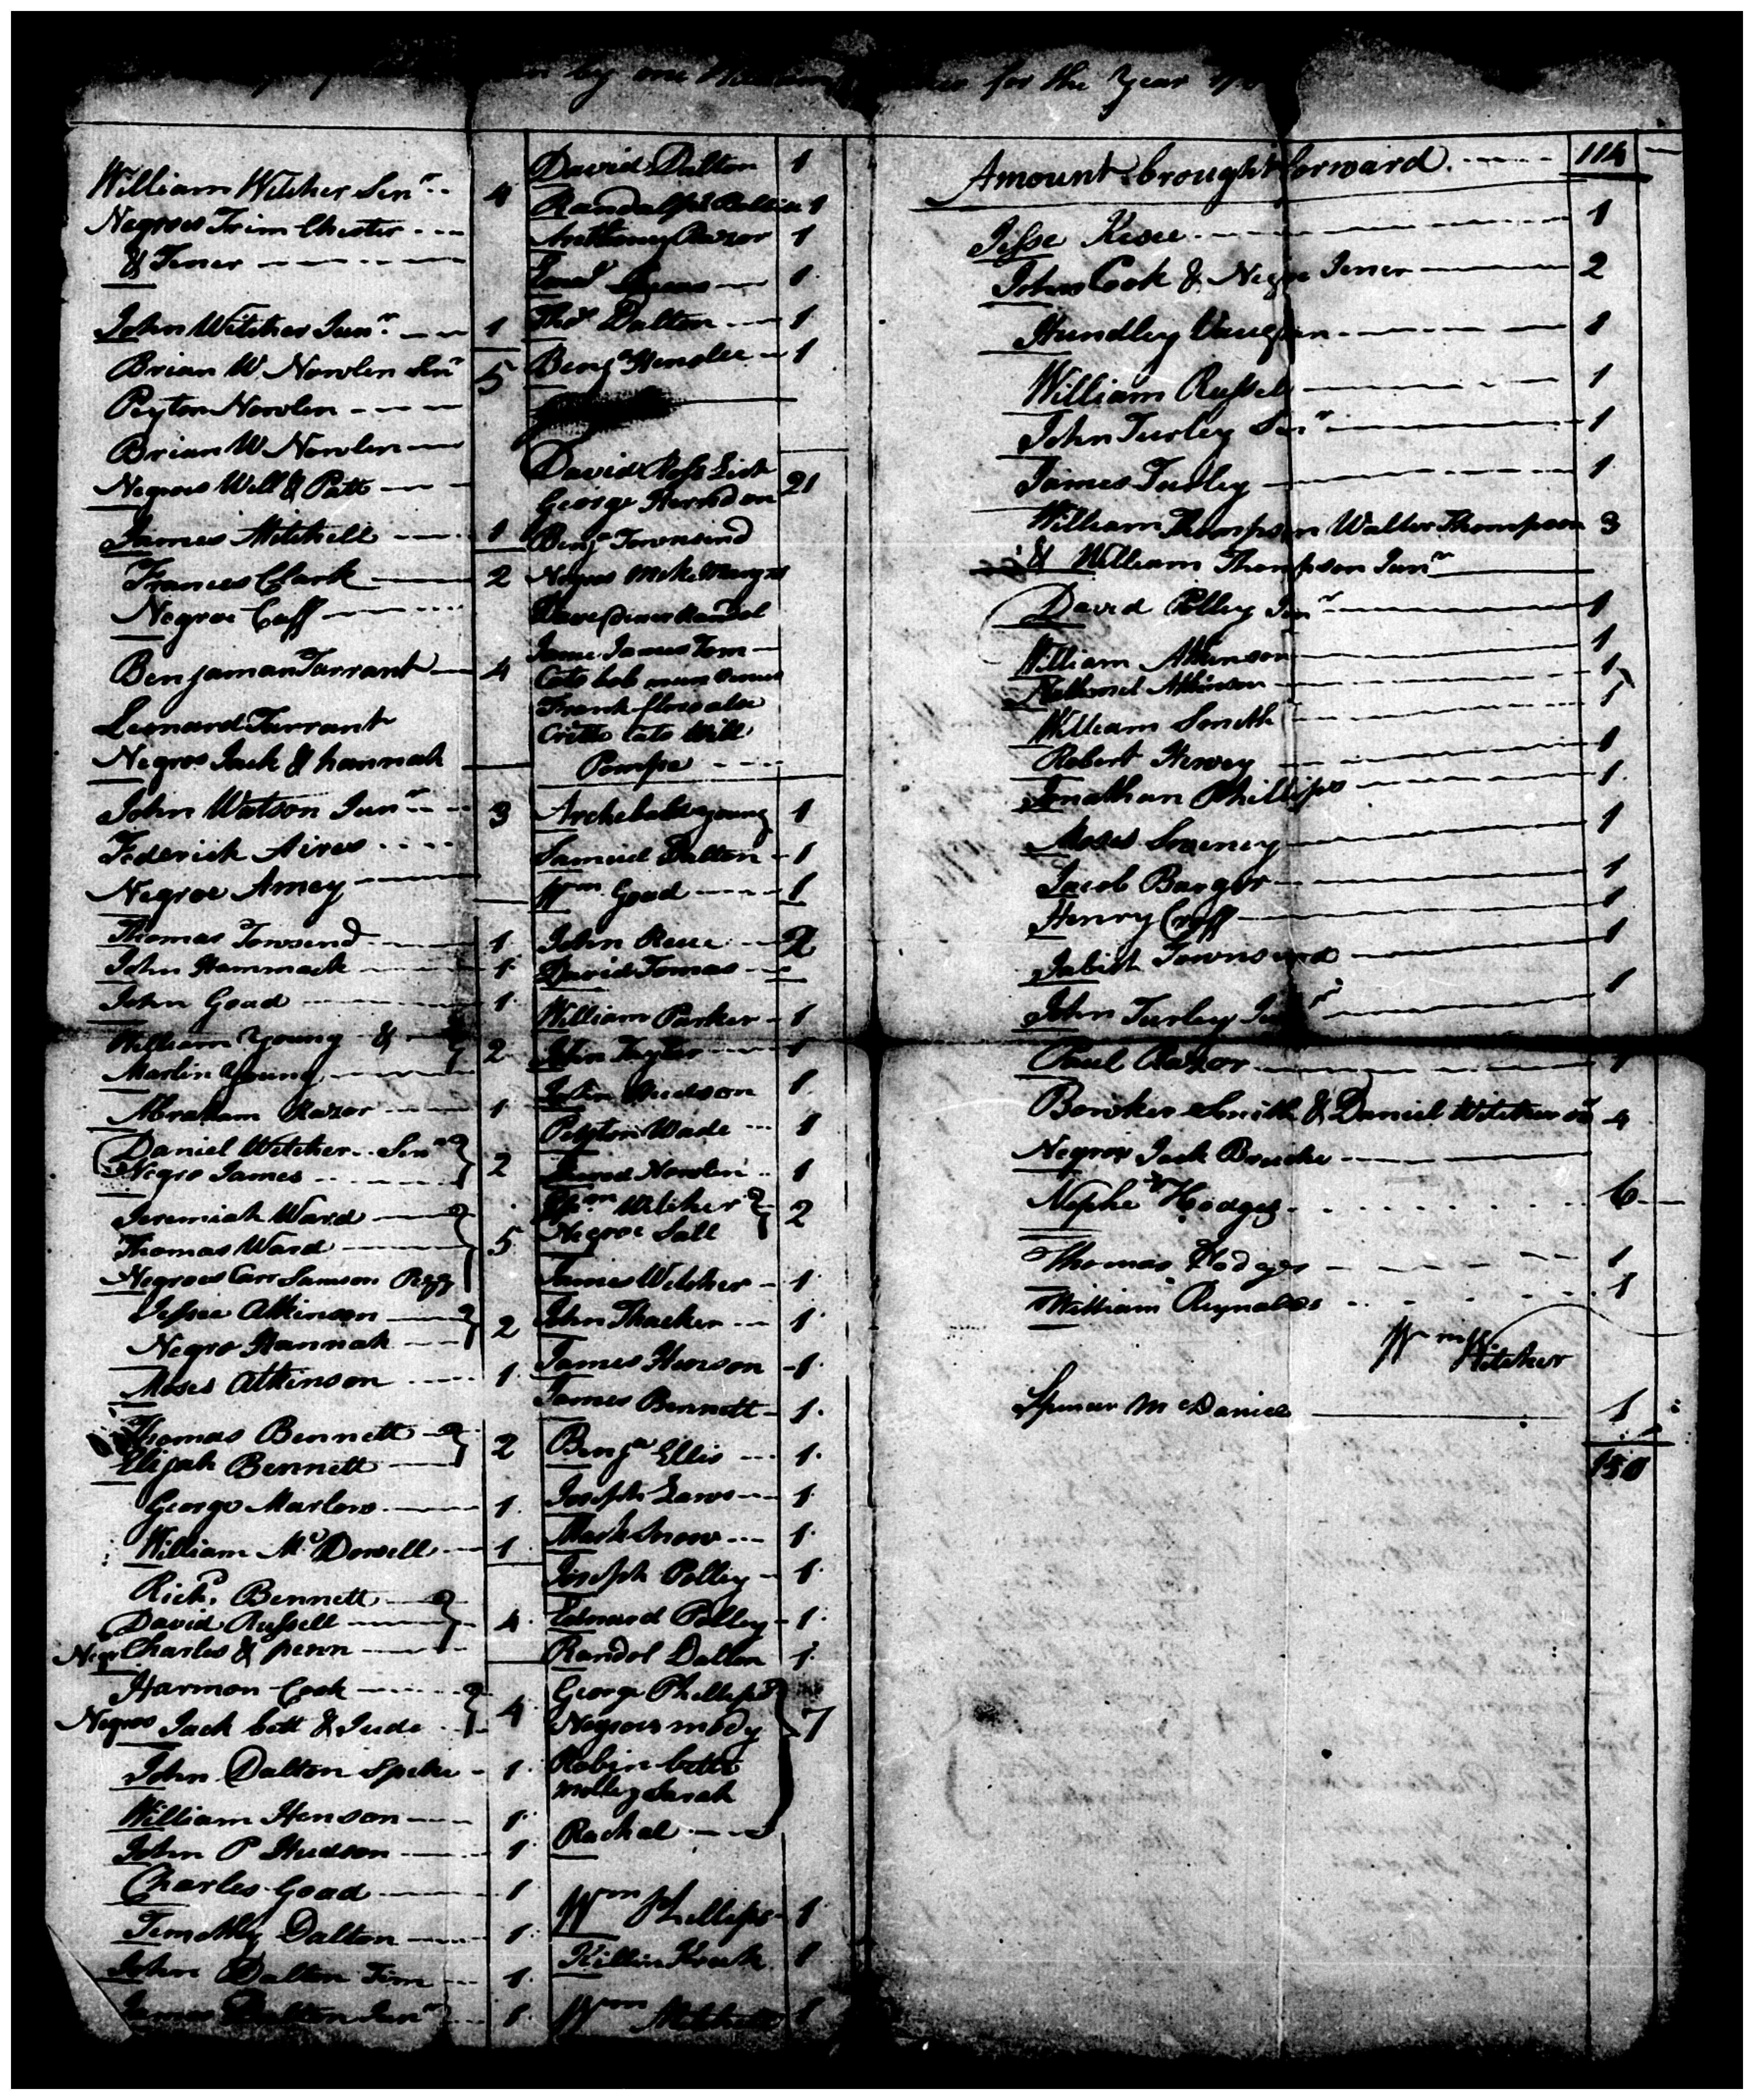 by me for the Year
William Witcher Senr 4
Negroes Trim Chester
& Tener
John Witcher Junr 1
Brian W. Nowlen Senr 5
Peyton Nowlen
Brian W Nowlen
Negroes Will & Patt
James Mitchell 1
Frances Clark 2
Negroe Caff
Benjaman Tarrant 4
Leonard Tarrant
Negros Jack & hannah
John Watson Junr 3
Federick Aires
Negroe Amey
Thomas Towsend 1
John Hammack 1
John Goad 1
William Young & 2
Marlin Young
Abraham Razor 1
Daniel Witcher Senr 2
Negro James
Jeremiah Ward
Thomas Ward 5
Negroes Carr Samson Pegg
Jessee Atkinson 2
Negro Hannah
Moses Atkinson 1
Thomas Bennett 2
Elijah Bennett
George Marlow 1
William McDowell 1
Richd. Bennett
David Russell 4
Negr Charles & penn
Harmon Cook 4
Negros Jack bett & Jude
John Dalton Spike 1
William Henson 1
John P Hudson 1
Charles Goad 1
Timothy Dalton 1
John Dalton Tim 1
James Dalton Junr 1
David Dalton 1
Randolph 1
Anthoney Razor 1
1
Thos Dalton 1
Benja Henslee 1
David Ross List
George Herndon 21
Benja Townsend
Negros Mike
Dave
James Tom
Cato bob
Frank
Cato Will
Pompe
Archebald Young 1
Samuel Dalton 1
Wm Goad 1
John Reue 2
David Tomas
William Parker 1
John Taylor 1
John Hudson 1
Peyton Wade 1
Nowlen 1
Wm Witcher 2
Negroe Sall
James Witcher 1
John Thacker 1
James Henson 1
James Bennett 1
Benja Ellis 1
Joseph Laws 1
Mark Snow 1
Joseph Polley 1
Edward Polley 1
Randol Dalton 1
George Phillips
Negroes mody 7
Robin bett
Molley Sarah
Rachal
Wm Phillips 1
Killin Kreek 1
Wm Mitchell 1
Amount brought forward. 114
Jesse Kesee 1
John Cook & Negro Jener 2
Hundley Vaughan 1
William Russell 1
John Turley Senr 1
James Turley 1
William Thompson Walter Thompson 3
& William Thompson Junr
David Polley Senr 1
William Atkinson 1
Nathaniel Atkinson 1
William Smith 1
Robert Hervey 1
Jonathan Phillips 1
Moses Sweney 1
Jacob Barger 1
Henry Croff 1
Jabish Townsend 1
John Turley Junr 1
Paul Razor 1
Bowker Smith & Daniel Witcher 4
Negroes Jack Brucke
Nephe Hodges 6
Thomas Hodges 1
William Reynolds 1
Wm Witcher
Spencer McDaniel 1
150